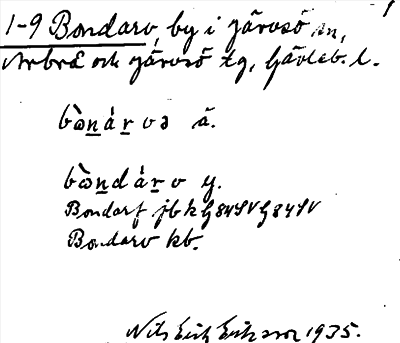 1-9 Bondarv, by i Järvsö sn,
Arbrå och Järvsö tg, Gävleb. l.
bὼṉáṟvə ä.
bὼṉdáṟv y.
Bondarf jb k G84SV G84SV
Bondarv kb.
Nils Erik Eriksson 1935.